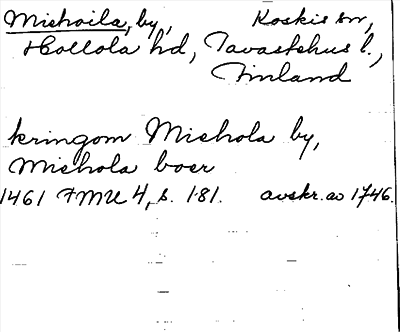 Mishoila, by, Koskis sn,
Hollola hd, Tavastehus l.,
Finland
kringom Mishola by,
Mishola boer
1461 FMU 4, s. 181. avskr. av 1746.